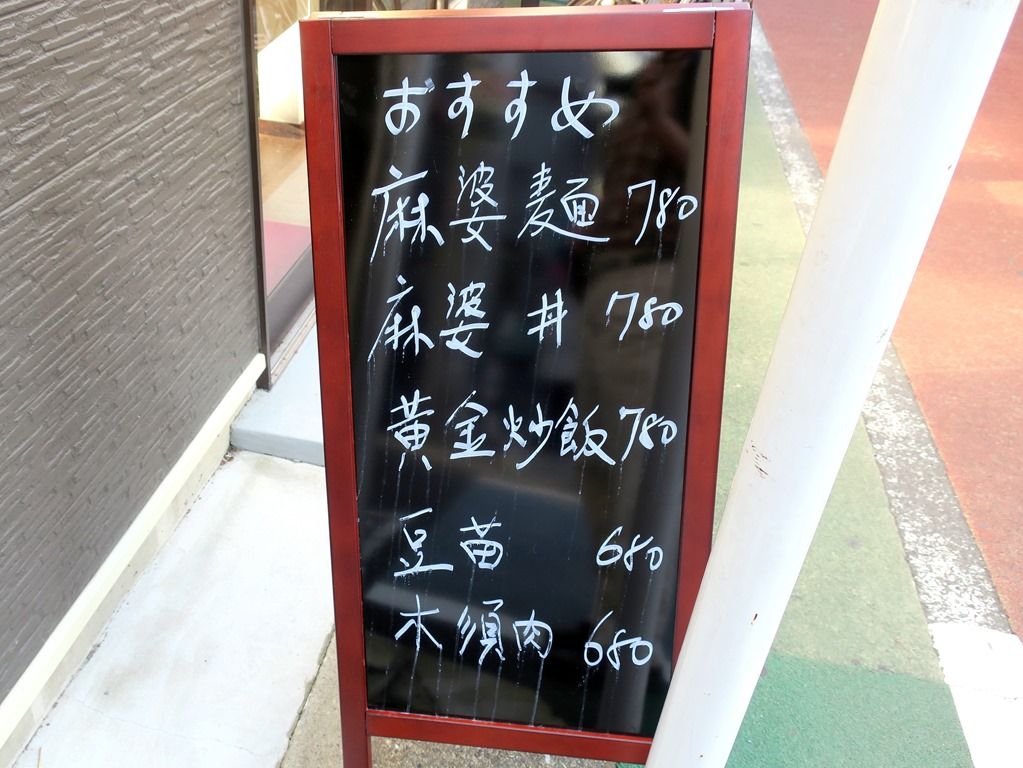 おすすめ
麻婆麺 780
麻婆丼 780
黄金炒飯 780
豆苗 680
木須肉 680